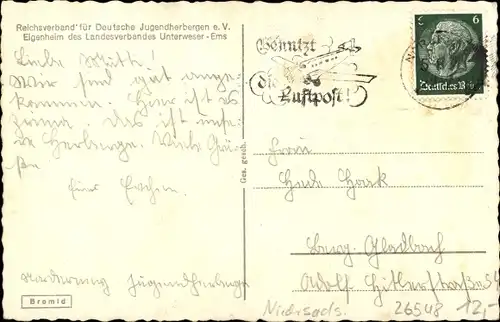 Reichsverband für Deutsche Jugendherbergen e.V.
Eigenheim des Landesverbandes Unterweser-Ems
Liebe Mutti!
Wir sind gut ange-
kommen. Hier ist es
prima. Das ist unse-
re Herberge. Viele Grü-
ße
Norderney Jugendherberge
Bromid
Ges. gesch.
Benutzt
die
Luftpost!
6
Deutsches Reich
Frau
Hede Haak
Berg. Gladbach
Adolf Hitlerstraße
Nieders.
26548 12,-